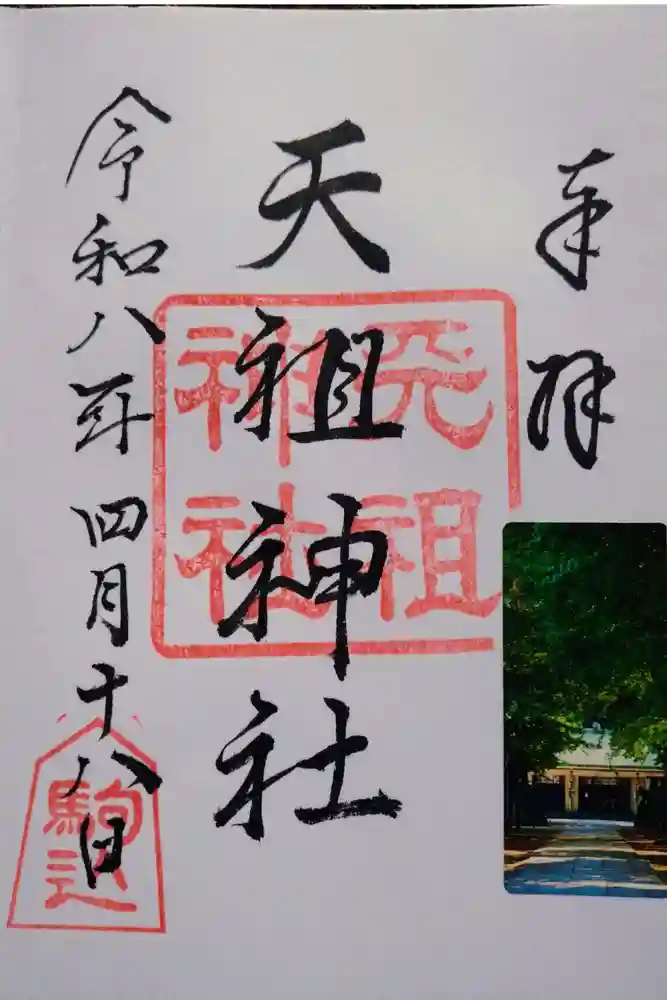 奉拝
天祖神社
天祖
神社
令和八年四月十八日
駒込